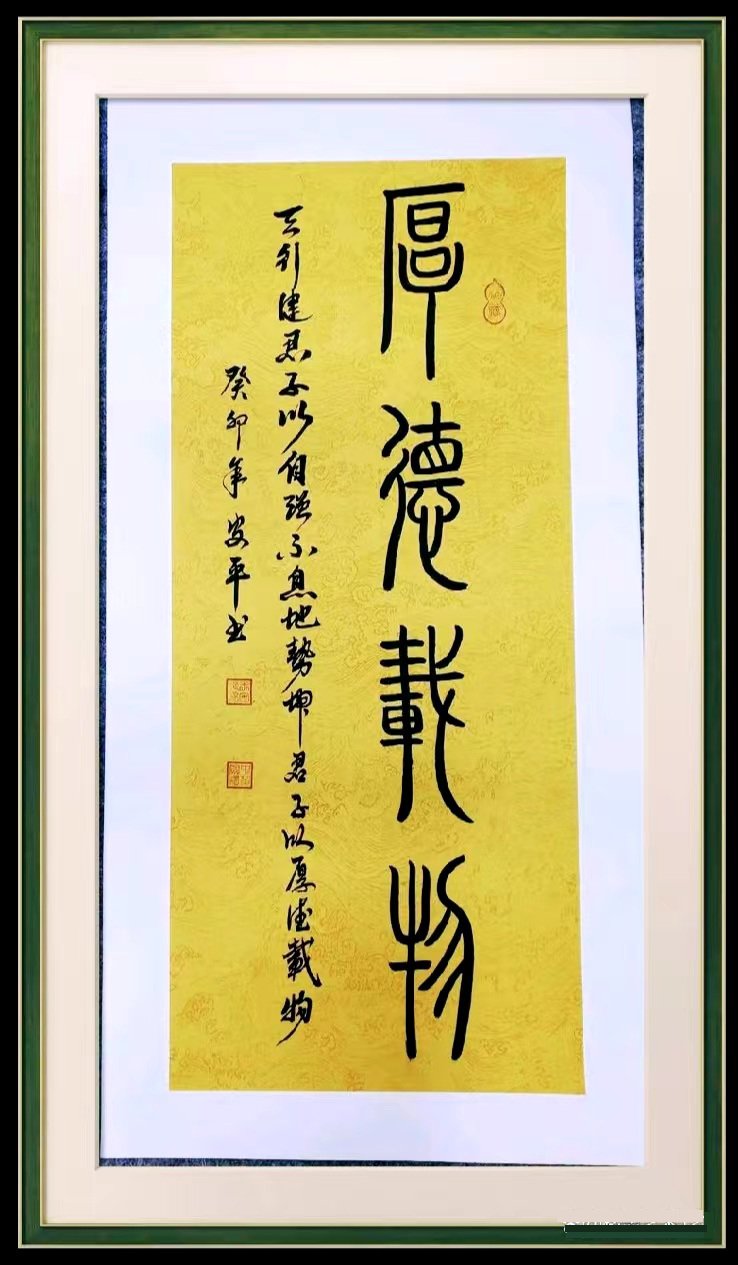 厚德載物
天行健君子以自强不息地勢坤君子以厚德載物
癸卯年安平书